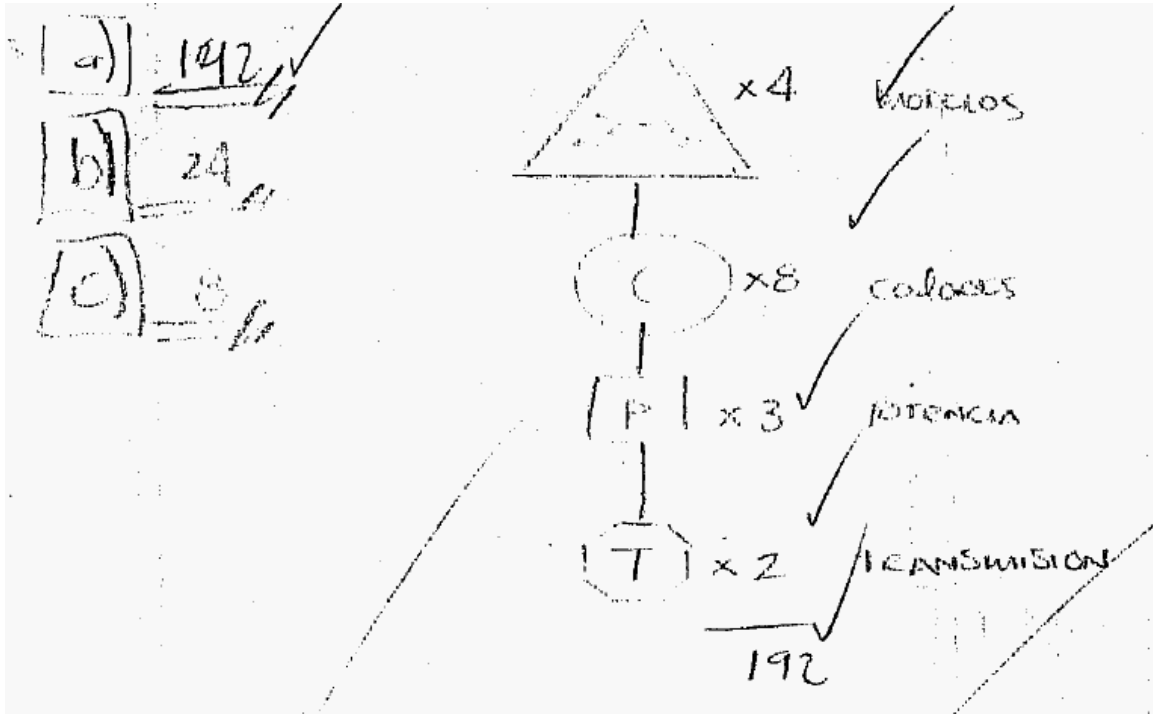 a) 192
b) 24
c) 8
x4 MODELOS
C x8 COLORES
P x 3 POTENCIA
T x 2 TRANSMISION
192